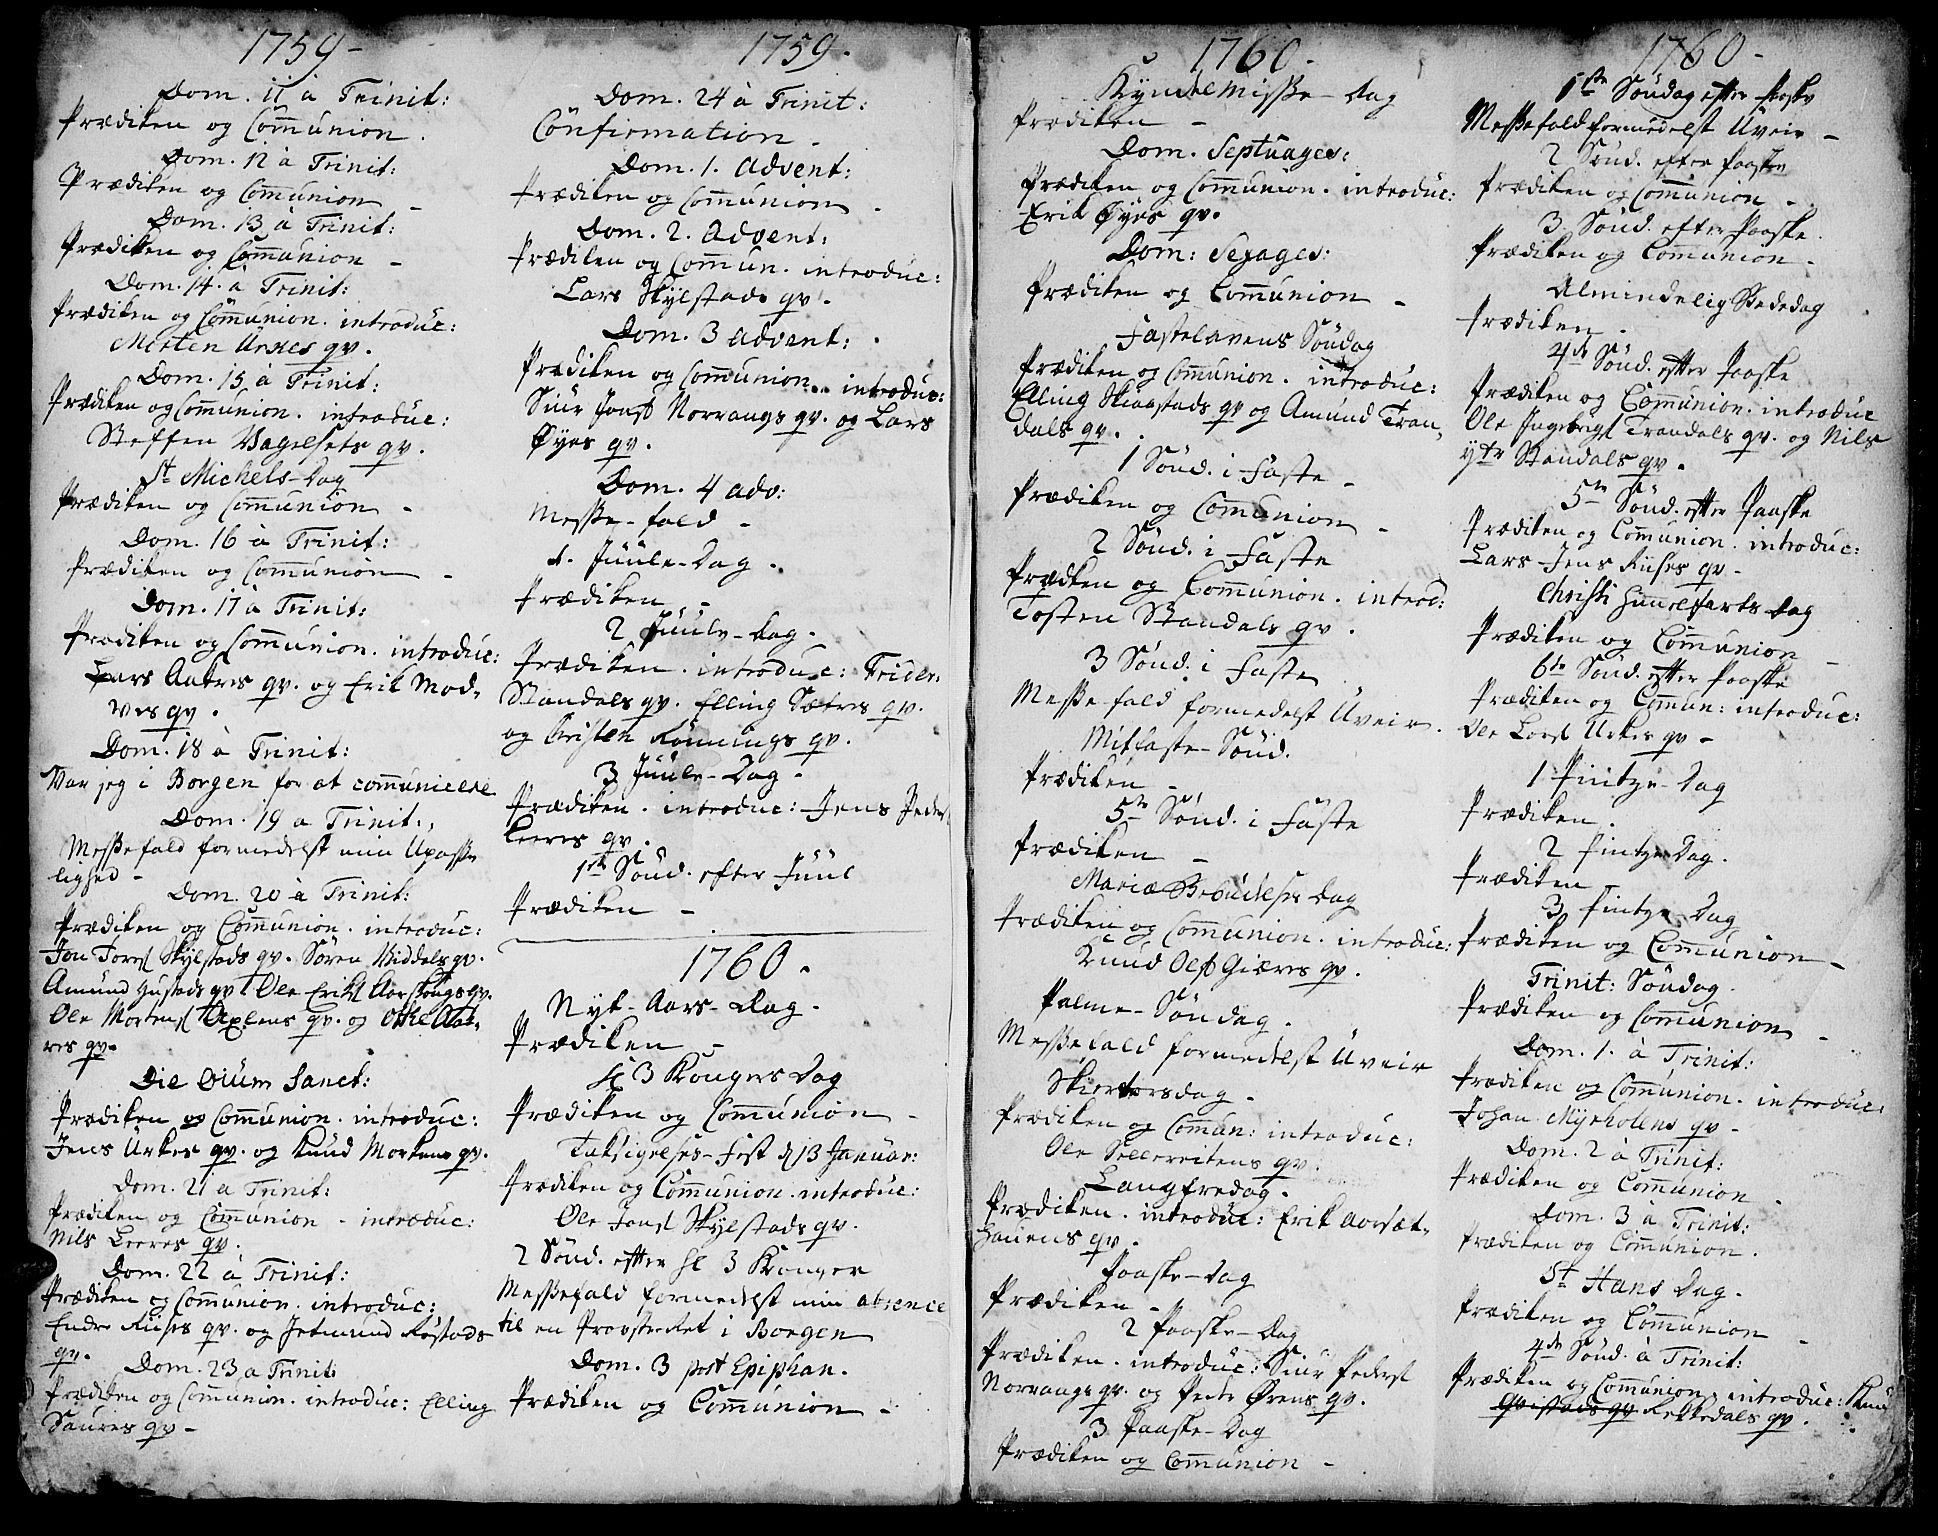 1759 -
Dom. 11 à Trinit:
Prædiken og Communion.
Dom. 12 à Trinit:
Prædiken og Communion -
Dom. 13 à Trinit:
Prædiken og Communion -
Dom. 14. à Trinit:
Prædiken og Communion. introduc:
Morten Urkes qv.
Dom. 15 à Trinit:
Prædiken og Communion. introduc:
Steffen Vagelsets qv.
St Michels-Dag
Prædiken og Communion -
Dom. 16 à Trinit:
Prædiken og Communion -
Dom. 17 à Trinit:
Prædiken og Communion. introduc:
Lars Aatres qv. og Erik Mod-
ves qv.
Dom. 18 à Trinit:
Var jeg i Borgen for at communicere
Dom. 19 a Trinit.
Messefald formedelst min Upasse
lighed -
Dom. 20 à Trinit:
Prædiken og Communion. introduc:
Jon Skylstads qv. Søren Viddals qv.
Amund Hustads qv Ole Erichs Aarskougs qv.
Ole Mortens qv. og
res qv.
Die Oium Sanct:
Prædiken og Communion. introduc:
Jens Urkes qv. og Knud Morkens qv.
Dom. 21 a Trinit:
Prædiken og Communion - introduc:
Nils Leeres qv.
Dom. 22 à Trinit:
Prædiken og Communion. introduc:
Endre Riises qv. og Jetmund Røstads
qv.
Dom. 23 a Trinit:
Prædiken og Communion. introduc: Elling
Saures qv -
1759.
Dom. 24 à Trinit:
Confirmation -
Dom. 1. Advent:
Prædiken og Communion -
Dom. 2. Advent:
Prædiken og Commun. introduc:
Lars Skylstads qv.
Dom. 3 advent:
Prædiken og Communion. introduc:
Siur Jonss Norrangs qv. og Lars
Øyes qv.
Dom. 4 adv:
Messe-fald -
1. Juule-Dag.
Prædiken -
2 Juule-Dag.
Prædiken. introduc: Frider:
Standals qv. Elling Sætres qv.
og Christen Rønnings qv.
3 Juule-Dag.
Prædiken. introduc: Jens Peders
Leeres qv.
1ste Sønd. efter Juul
Prædiken -
1760.
Nyt-Aars-Dag.
Prædiken -
H 3 Kongers Dag
Prædiken og Communion -
Taksigelses-Fest d 13 Januar:
Prædiken og Communion. introduc:
Ole Jens Skylstads qv.
2 Sønd. efter H 3 Konger
Messefald formedelst min absence
til en Provsteret i Borgen
Dom. 3 post Epiphan.
Prædiken og Communion -
1760.
Kyndelmisse-Dag
Prædiken -
Dom. Septuages:
Prædiken og Communion. introduc:
Erik Øyes qv.
Dom: Sexages:
Prædiken og Communion -
Fastelavens Søndag
Prædiken og Communion. introduc:
Elling Skiarstads qv og Amund Tran-
dals qv.
1 Sønd. i Faste -
Prædiken og Communion -
2 Sønd. i Faste
Prædken og Communion. introd:
Tosten Standals qv.
3 Sønd. i Faste
Messe fald formedelst Uveir.
Mitfaste-Sønd.
Prædiken -
5te Sønd. i Faste
Prædiken -
Mariæ Bebudelses Dag
Prædiken og Communion. introduc:
Knud Olss Giærs qv.
Palme-Søndag.
Messefald formedelst Uveir
Skiertorsdag -
Prædiken og Comun: introduc:
Ole Sellereitens qv.
Langfredag.
Prædiken. introduc: Erik Aarsæt-
Hauens qv.
Paaske-Dag
Prædiken -
2 Paaske-Dag
Prædiken. introduc: Siur Peders
Norrangs qv. og Peder Ørens qv.
3 Paaske-Dag
Prædiken og Communion -
1760 -
1ste Søndag efter Paaske
Messefald formedelst Uveir -
2 Sønd. efter Paaske
Prædiken og Communion -
3 Sønd. efter Paaske.
Prædiken og Communion -
Almindelig Bededag
Prædiken.
4de Sønd. efter Paaske
Prædiken og Communion. introduc
Ole Ingebrigs Trandals qv. og Nils
ytr Standals qv.
5te Sønd. efter Paaske
Prædiken og Communion. introduc:
Lars Jens Riises qv -
Christi Himmelfarts Dag
Prædiken og Communion -
6te Sønd. efter Paaske
Prædiken og Commun: introduc:
Ole Lars Urkes qv -
1 Pintze-Dag
Prædiken.
2 Pintze Dag.
Prædiken -
3 Pintze Dag
Prædiken og Communion -
Trinit: Søndag.
Prædiken og Communion -
Dom. 1. à Trinit:
Prædiken og Communion. introduc:
Johan Myrholens qv -
Dom. 2 à Trinit:
Prædiken og Communion -
Dom. 3 à Trinit:
Prædiken og Communion.
St Hans Dag.
Prædiken og Communion -
4de Sønd. à Trinit:
Prædiken og Communion. introduc: Knud
Qvistads qv Rekkedals qv.